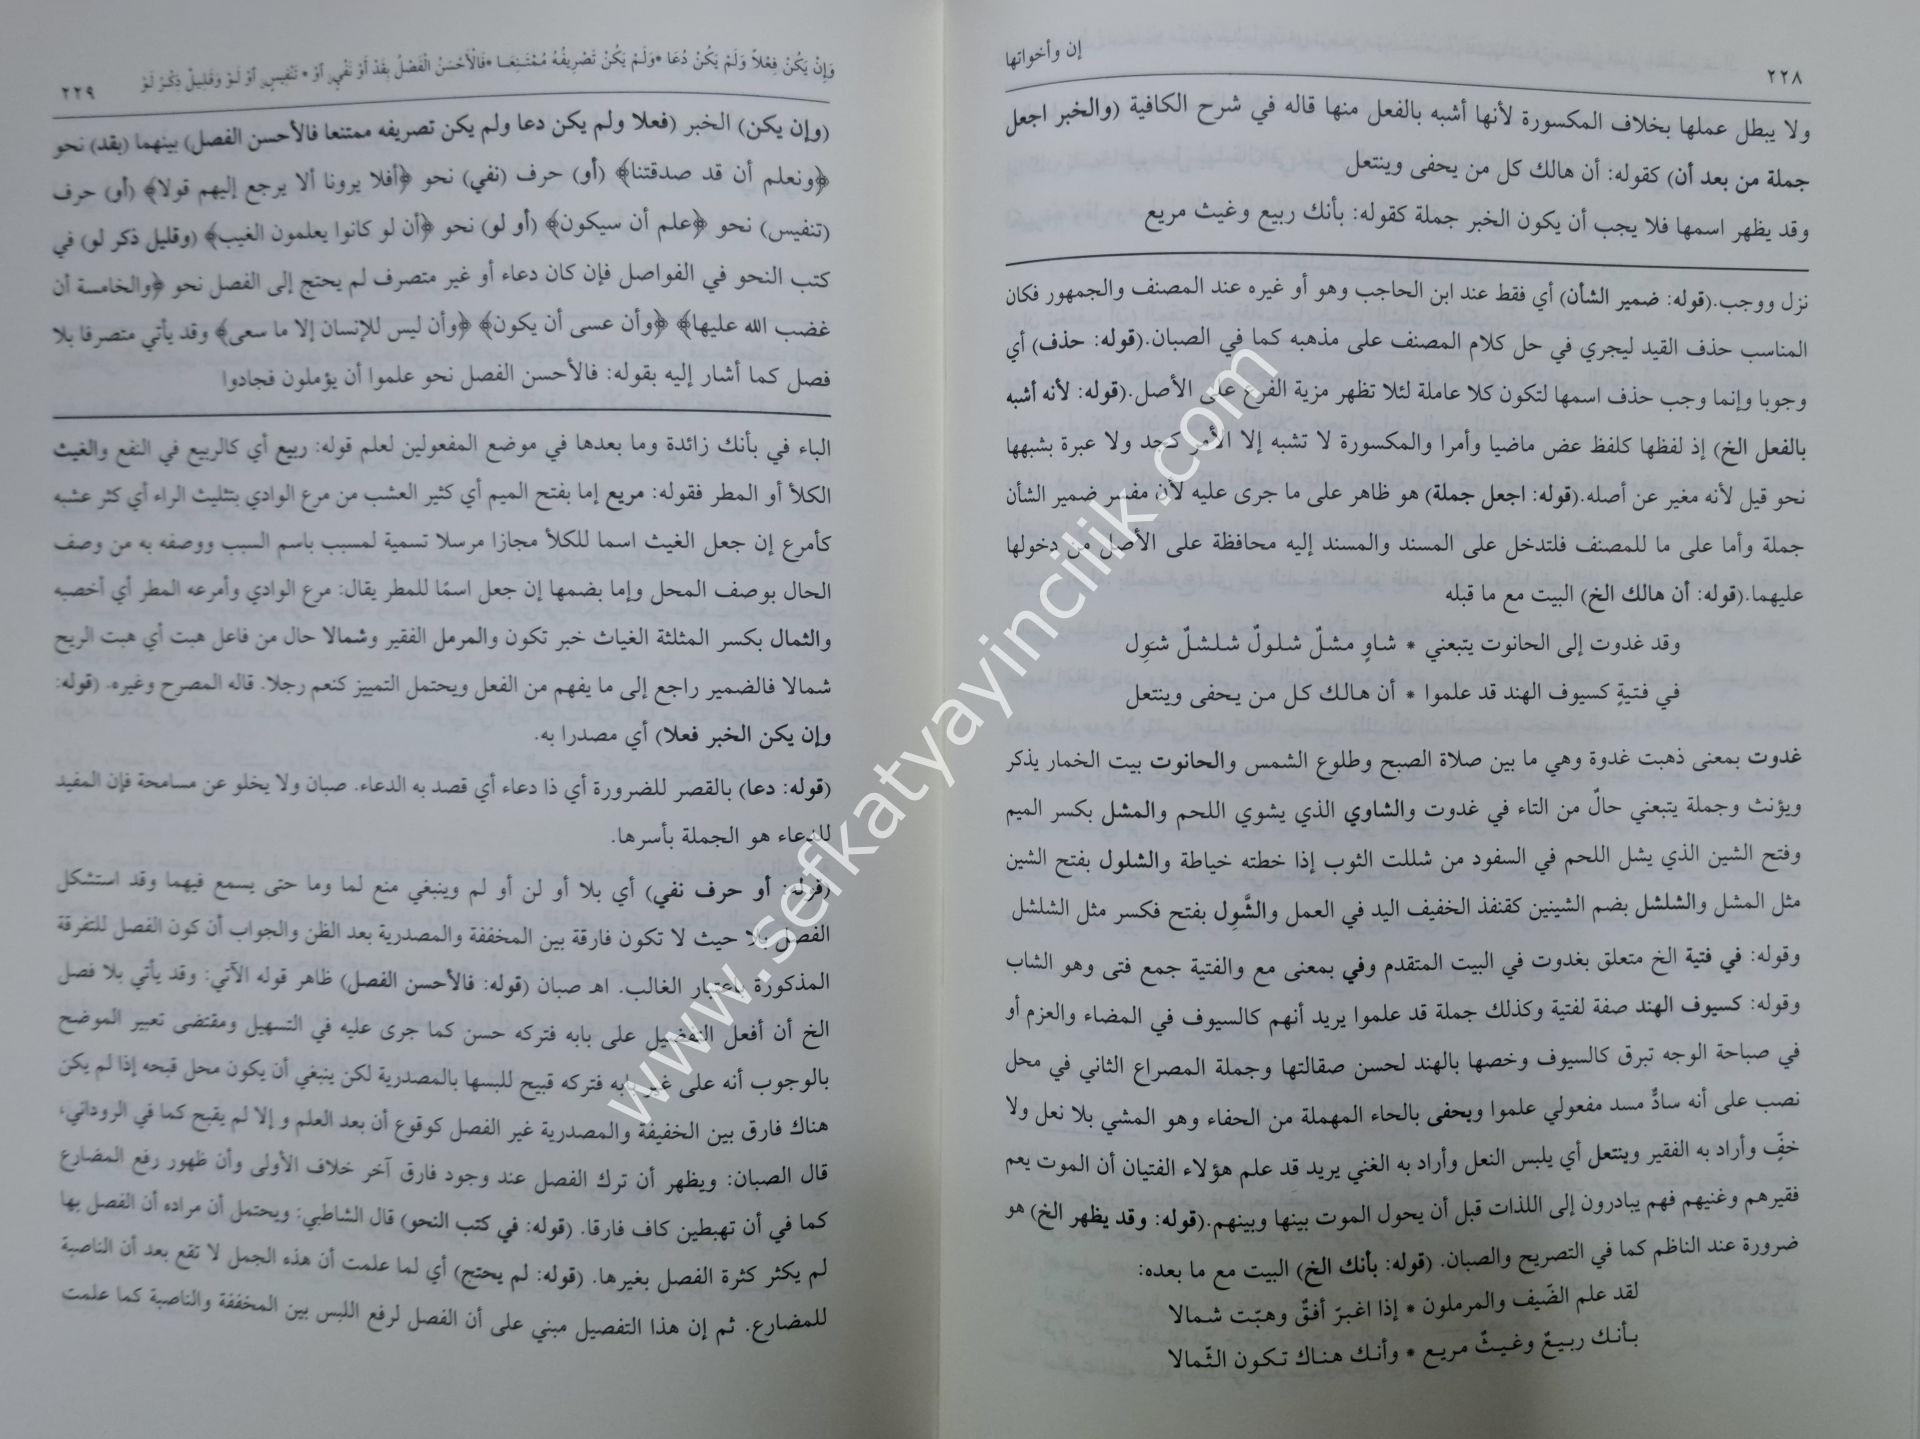 ٢٢٨
إن وأخواتها
ولا يبطل عملها بخلاف المكسورة لأنها أشبه بالفعل منها قاله في شرح الكافية (والخبر اجعل
جملة من بعد أن) كقوله: أن هالك كل من يحفى وينتعل
وقد يظهر اسمها فلا يجب أن يكون الخبر جملة كقوله: بأنك ربيع وغيث مريع
نزل ووجب.(قوله: ضمير الشأن) أي فقط عند ابن الحاجب وهو أو غيره عند المصنف والجمهور فكان
المناسب حذف القيد ليجري في حل كلام المصنف على مذهبه كما في الصبان.(قوله: حذف) أي
وجوبا وإنما وجب حذف اسمها لتكون كلا عاملة لئلا تظهر مزية الفرع على الأصل.(قوله: لأنه أشبه
بالفعل الخ) إذ لفظها كلفظ عض ماضيا وأمرا والمكسورة لا تشبه إلا الأمر كجد ولا عبرة بشبهها
نحو قيل لأنه مغير عن أصله.(قوله: اجعل جملة) هو ظاهر على ما جرى عليه لأن مفسر ضمير الشأن
جملة وأما على ما للمصنف فلتدخل على المسند والمسند إليه محافظة على الأصل من دخولها
عليهما.(قوله: أن هالك الخ) البيت مع ما قبله
وقد غدوت إلى الحانوت يتبعني * شاوٍ مشلٌ شلولٌ شلشلٌ شَوِل
في فتيةٍ كسيوف الهند قد علموا * أن هالك كل من يحفى وينتعل
غدوت بمعنى ذهبت غدوة وهي ما بين صلاة الصبح وطلوع الشمس والحانوت بيت الخمار يذكر
ويؤنث وجملة يتبعني حالٌ من التاء في غدوت والشاوي الذي يشوي اللحم والمشل بكسر الميم
وفتح الشين الذي يشل اللحم في السفود من شللت الثوب إذا خطته خياطة والشلول بفتح الشين
مثل المشل والشلشل بضم الشينين كقنفذ الخفيف اليد في العمل والشَّوِل بفتح فكسر مثل الشلشل
وقوله: في فتية الخ متعلق بغدوت في البيت المتقدم وفي بمعنى مع والفتية جمع فتى وهو الشاب
وقوله: كسيوف الهند صفة لفتية وكذلك جملة قد علموا يريد أنهم كالسيوف في المضاء والعزم أو
في صباحة الوجه تبرق كالسيوف وخصها بالهند لحسن صقالتها وجملة المصراع الثاني في محل
نصب على أنه سادٌّ مسد مفعولي علموا ويحفى بالحاء المهملة من الحفاء وهو المشي بلا نعل ولا
خفٍّ وأراد به الفقير وينتعل أي يلبس النعل وأراد به الغني يريد قد علم هؤلاء الفتيان أن الموت يعم
فقيرهم وغنيهم فهم يبادرون إلى اللذات قبل أن يحول الموت بينها وبينهم.(قوله: وقد يظهر الخ) هو
ضرورة عند الناظم كما في التصريح والصبان. (قوله: بأنك الخ) البيت مع ما بعده:
لقد علم الضّيف والمرملون * إذا اغبرّ أفقٌ وهبّت شمالا
بأنك ربيعٌ وغيثٌ مريع * وأنك هناك تكون الثّمالا
وَإِنْ يَكُنْ فِعْلاً وَلَمْ يَكُنْ دُعَا *وَلَمْ يَكُنْ تَصْرِيفُهُ مُمْتَنِعَا *فَالْأَحْسَنُ الْفَصْلُ بِقَدْ أَوْ نَفْيٍ أَوْ * تَنْفِيسٍ أَوْ لَوْ وَقَلِيلٌ ذِكْرُ لَوْ
٢٢٩
(وإن يكن) الخبر (فعلا ولم يكن دعا ولم يكن تصريفه ممتنعا فالأحسن الفصل) بينهما (بقد) نحو
﴿ونعلم أن قد صدقتنا﴾ (أو) حرف (نفي) نحو ﴿أفلا يرونا ألا يرجع إليهم قولا﴾ (أو) حرف
(تنفيس) نحو ﴿علم أن سيكون﴾ (أو لو) نحو ﴿أن لو كانوا يعلمون الغيب﴾ (وقليل ذكر لو) في
كتب النحو في الفواصل فإن كان دعاء أو غير متصرف لم يحتج إلى الفصل نحو ﴿والخامسة أن
غضب الله عليها﴾ ﴿وأن عسى أن يكون﴾ ﴿وأن ليس للإنسان إلا ما سعى﴾ وقد يأتي متصرفا بلا
فصل كما أشار إليه بقوله: فالأحسن الفصل نحو علموا أن يؤملون فجادوا
الباء في بأنك زائدة وما بعدها في موضع المفعولين لعلم قوله: ربيع أي كالربيع في النفع والغيث
الكلأ أو المطر فقوله: مريع إما بفتح الميم أي كثير العشب من مرع الوادي بتثليث الراء أي كثر عشبه
كأمرع إن جعل الغيث اسما للكلأ مجازا مرسلا تسمية لمسبب باسم السبب ووصفه به من وصف
الحال بوصف المحل وإما بضمها إن جعل اسمًا للمطر يقال: مرع الوادي وأمرعه المطر أي أخصبه
والثمال بكسر المثلثة الغياث خبر تكون والمرمل الفقير وشمالا حال من فاعل هبت أي هبت الريح
شمالا فالضمير راجع إلى ما يفهم من الفعل ويحتمل التمييز كنعم رجلا. قاله المصرح وغيره. (قوله:
وإن يكن الخبر فعلا) أي مصدرا به.
(قوله: دعا) بالقصر للضرورة أي ذا دعاء أي قصد به الدعاء. صبان ولا يخلو عن مسامحة فإن المفيد
للدعاء هو الجملة بأسرها.
(قوله: أو حرف نفي) أي بلا أو لن أو لم وينبغي منع لما وما حتى يسمع فيهما وقد استشكل
الفصل بلا حيث لا تكون فارقة بين المخففة والمصدرية بعد الظن والجواب أن كون الفصل للتفرقة
المذكورة باعتبار الغالب. اهـ صبان (قوله: فالأحسن الفصل) ظاهر قوله الآتي: وقد يأتي بلا فصل
الخ أن أفعل التفضيل على بابه فتركه حسن كما جرى عليه في التسهيل ومقتضى تعبير الموضح
بالوجوب أنه على غير بابه فتركه قبيح للبسها بالمصدرية لكن ينبغي أن يكون محل قبحه إذا لم يكن
هناك فارق بين الخفيفة والمصدرية غير الفصل كوقوع أن بعد العلم و إلا لم يقبح كما في الروداني،
قال الصبان: ويظهر أن ترك الفصل عند وجود فارق آخر خلاف الأولى وأن ظهور رفع المضارع
كما في أن تهبطين كاف فارقا. (قوله: في كتب النحو) قال الشاطبي: ويحتمل أن مراده أن الفصل بها
لم يكثر كثرة الفصل بغيرها. (قوله: لم يحتج) أي لما علمت أن هذه الجمل لا تقع بعد أن الناصبة
للمضارع. ثم إن هذا التفصيل مبني على أن الفصل لرفع اللبس بين المخففة والناصبة كما علمت
www.sefkatyayincilik.com